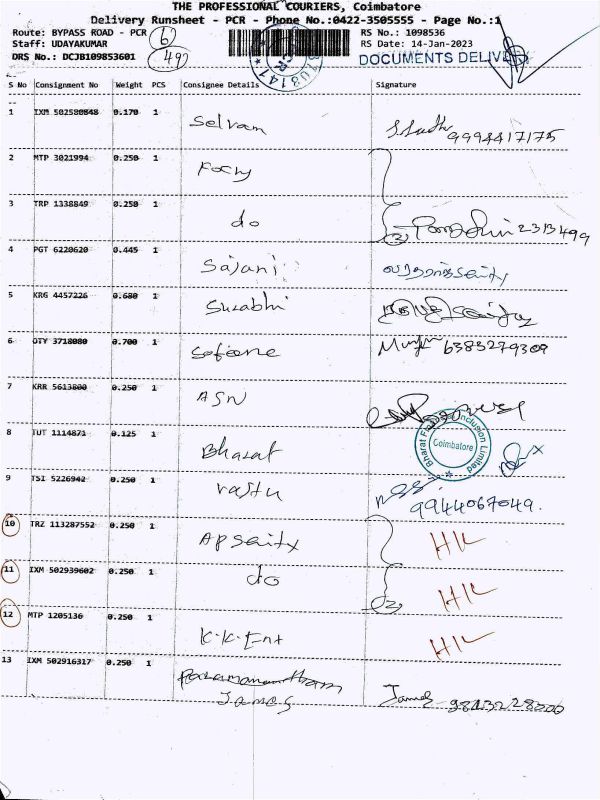 THE PROFESSIONAL COURIERS, Coimbatore
Delivery Runsheet - PCR - Phone No.:0422-3505555 - Page No.:1
Route: BYPASS ROAD - PCR 6 RS No.: 1098536
Staff: UDAYAKUMAR RS Date: 14-Jan-2023
DRS No.: DCJB109853601 49 DOCUMENTS DELIVE
S No Consignment No Weight PCS Consignee Details Signature
1 IXM 502580848 0.170 1 Selvam 9994417175
2 MTP 3021994 0.250 1
3 TRP 1338849 0.250 1 do 2313499
4 PGT 6220620 0.445 1 Sajani
5 KRG 4457226 0.680 1 Surabhi
6 OTY 3718080 0.700 1 6383279309
7 KRR 5613800 0.250 1 ASN
8 TUT 1114871 0.125 1 Bharat
Bharat Financial Inclusion Limited
Coimbatore
9 TSI 5226942 0.250 1 vastu 9944067049.
10 TRZ 113287552 0.250 1 HK
11 IXM 502939602 0.250 1 do HK
12 MTP 1205136 0.250 1 K.K.Ent HK
13 IXM 502916317 0.250 1
James James